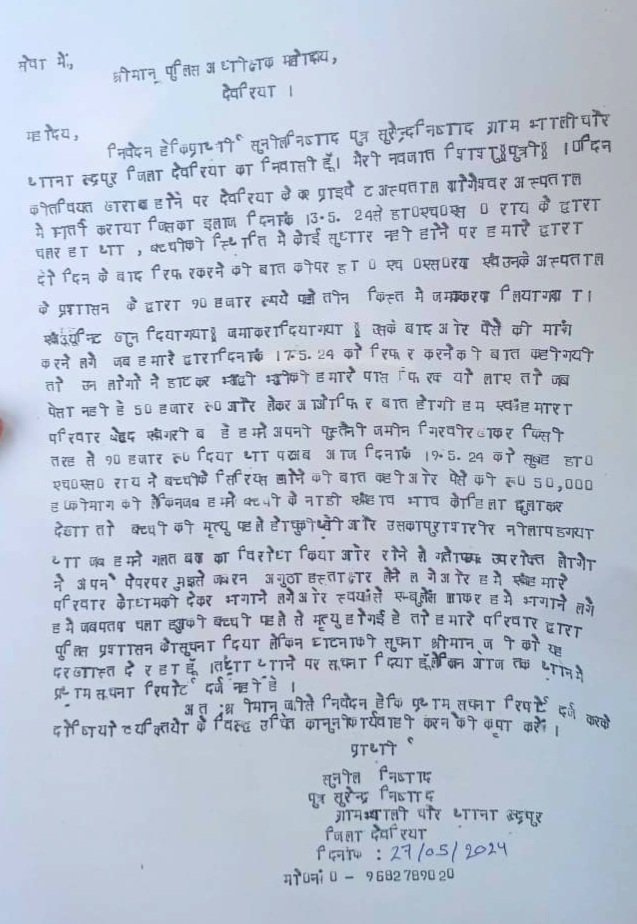 सेवा में,
श्रीमान् पुलिस अधीक्षक महोदय,
देवरिया ।
महोदय,
निवेदन है कि प्रार्थी सुनील निषाद पुत्र सुरेन्द्र निषाद ग्राम भ्भाली चौर
थाना रूद्रपुर जिला देवरिया का निवासी हूँ। मेरी नवजात शिशु §पुत्री§ 10 दिन
की तवियत खराब होने पर देवरिया के क प्राइवेट अस्पताल बागेश्वर अस्पताल
में भर्ती कराया जिसका इलाज दिनांक 13.5. 24 से डा0 एच0 एस 0 राय के द्वारा
चल रहा था , बच्ची की स्थिति में कोई सुधार नही होने पर हमारे द्वारा
दो दिन के बाद रिफर करने की बात की पर डा 0 एच 0एस0 राय एवं उनके अस्पताल
के प्रशासन के द्वारा 90 हजार रूपये पहले तीन किस्त मे जमा करवा लिया गया था।
एवं यूनिट खुन दिया गया§ जमा करा दिया गया § उसके बाद और पैसे की मांग
करने लगे जब हमारे द्वारा दिनांक 17.5.24 को रिफर करने की बात कही गयी
तो उन लोगों ने डाट कर भद्दी भद्दी की हमारे पास फिर क्यों लाए तो जब
पैसा नही है 50 हजार रू0 और लेकर आओ फिर बात होगी हम एवं हमारा
परिवार बेहद एवं गरीब है हमने अपनी पुश्तैनी जमीन गिरवी रखकर किसी
तरह से 90 हजार रू0 दिया था पर जब आज दिनांक 19.5.24 को सुबह डा0
एच0एस0 राय ने बच्ची के सिरियस होने की बात कही और पैसे की रू0 50,000
ह की मांग की लेकिन जब हमने बच्ची के नाडी एवं हाथ भाव को हिला डुलाकर
देखा तो बच्ची की मृत्यु पहले हो चुकी थी और उसका पुरा शरीर नीला पड गया
था जब हमने गलत का विरोध किया और रोने लगे तो उपरोक्त लोगो
ने अपने पेपर पर मुझसे जबरन अगुठा हस्ताक्षर लेने लगे और हमे एवं हमारे
परिवार को धमकी देकर भगाने लगे और स्वयं से एम्बुलेंस लाकर हमे भगाने लगे
हमे जब पता चला हमारी बच्ची पहले से मृत्यु हो गई है तो हमारे परिवार द्वारा
पुलिस प्रशासन को सूचना दिया लेकिन घटना की सूचना श्रीमान् जी को यह
दरखास्त दे रहा हूँ ।तथा थाने पर सूचना दिया हूँ लेकिन आज तक थाने मे
प्रथम सूचना रिपोर्ट दर्ज नही है ।
अत :श्रीमान जी से निवेदन है कि प्रथम सूचना रिपोर्ट दर्ज करके
दोषियो व्यक्तियो के विरूद्ध उचित कानूनी कार्यवाही करने की कृपा करें ।
प्रार्थी
सुनील निषाद
पुत्र सुरेन्द्र निषाद
ग्राम भ्भाली चौर थाना रूद्रपुर
जिला देवरिया
दिनांक : 27/05/2024
मो0नं 0 - 9682789020